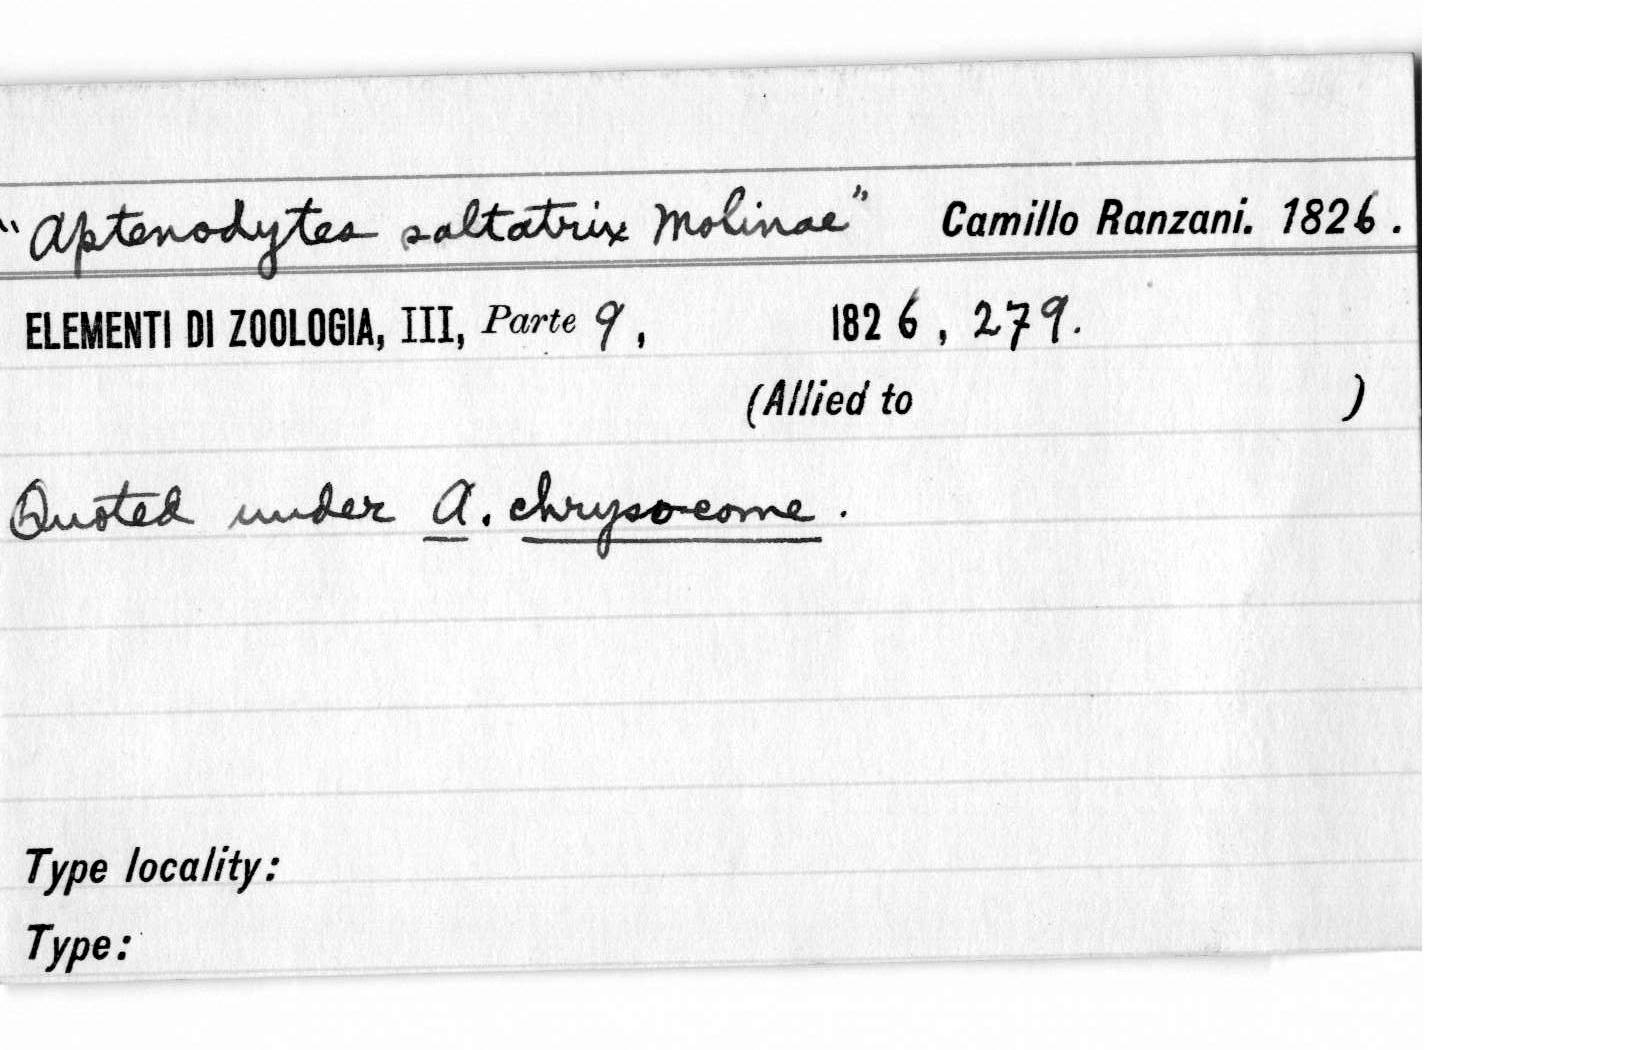 "Aptenodytes saltatrix Molinae" Camillo Ranzani. 1826.
ELEMENTI DI ZOOLOGIA, III, Parte 9, 1826, 279.
(Allied to )
Quoted under A. chrysocome.
Type locality:
Type: